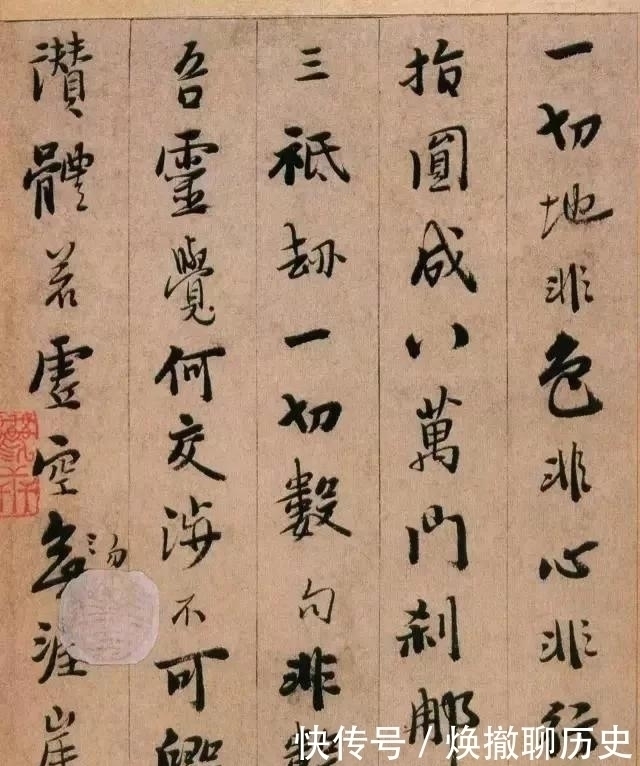 一切地非色非心非行
指圓成八萬門刹那
三祇劫一切數句非數
吾靈覺何交涉不可
讚體若虛空無涯岸
勿
快传号 / 焕撤聊历史